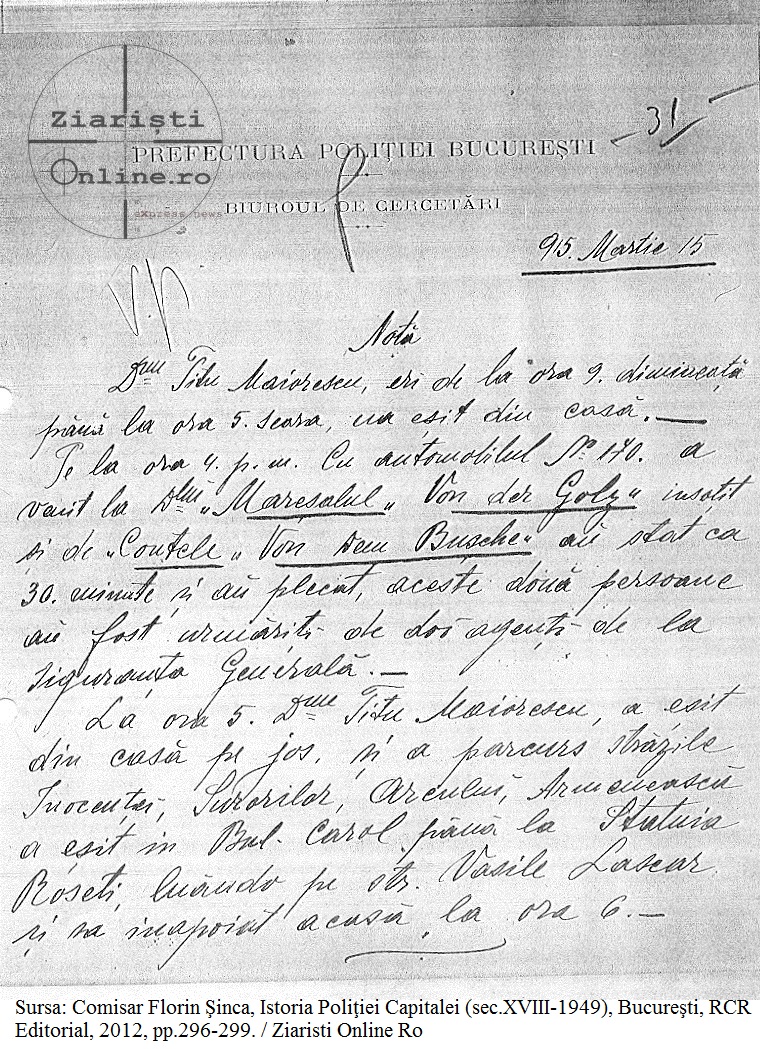 31
Ziariști
Online.ro
eXpress news
PREFECTURA POLIȚIEI BUCUREȘTI
BIUROUL DE CERCETĂRI
915. Martie 15
Notă
Dnul Titu Maiorescu, eri de la ora 9. dimineață
până la ora 5. seara, na eșit din casă.—
Pe la ora 4. p.m. Cu automobilul No 140. a
venit la Dlui „Mareșalul„ Von der Golz" insoțit
și de „Contele„ Von dem Bușche" au stat ca
30. minute și au plecat, aceste două persoane
au fost urmăriți de doi agenți de la
Siguranța Generală.—
La ora 5. Dnul Titu Maiorescu, a eșit
din casă pe jos, și a parcurs străzile
Inocenței, Surorilor, Arcului, Armenească
a eșit in Bul. Carol până la Statuia
Roseti, luândo pe str. Vasile Lascar
și sa inapoiat acasă la ora 6.—
Sursa: Comisar Florin Şinca, Istoria Poliţiei Capitalei (sec.XVIII-1949), Bucureşti, RCR
Editorial, 2012, pp.296-299. / Ziaristi Online Ro